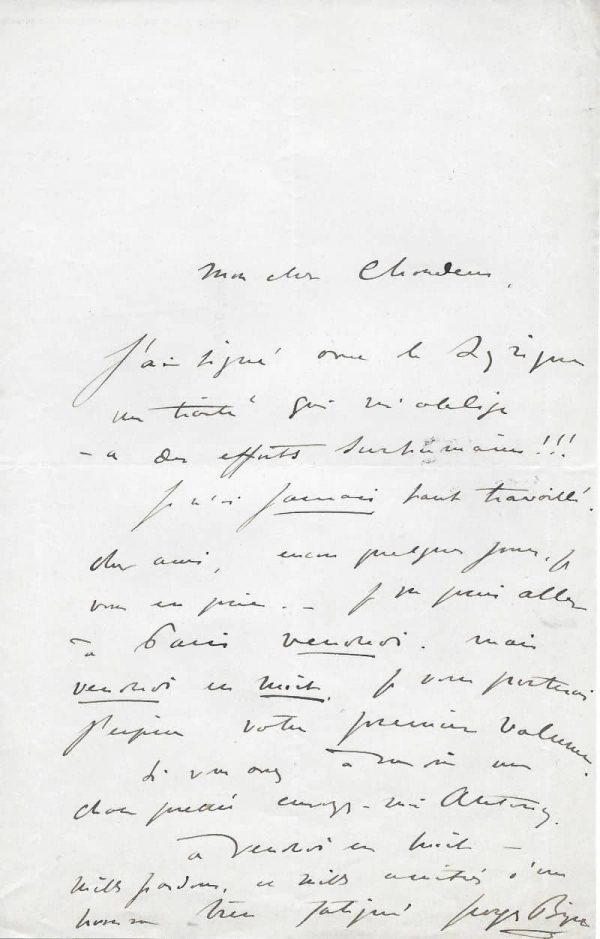 Mon cher Choudens,
J'ai signé avec le Lyrique
un traité qui m'oblige
à des efforts surhumains!!!
Je n'ai jamais tant travaillé.
cher ami, encore quelques jours, je
vous en prie. – Je ne puis aller
à Paris vendredi. mais
vendredi en huit, je vous porterai
j'espère votre premier volume.
Si vous avez à me voir
chose pressée envoyez-moi Antony.
à vendredi en huit –
mille pardons, et mille amitiés d'un
homme très fatigué Georges Bizet